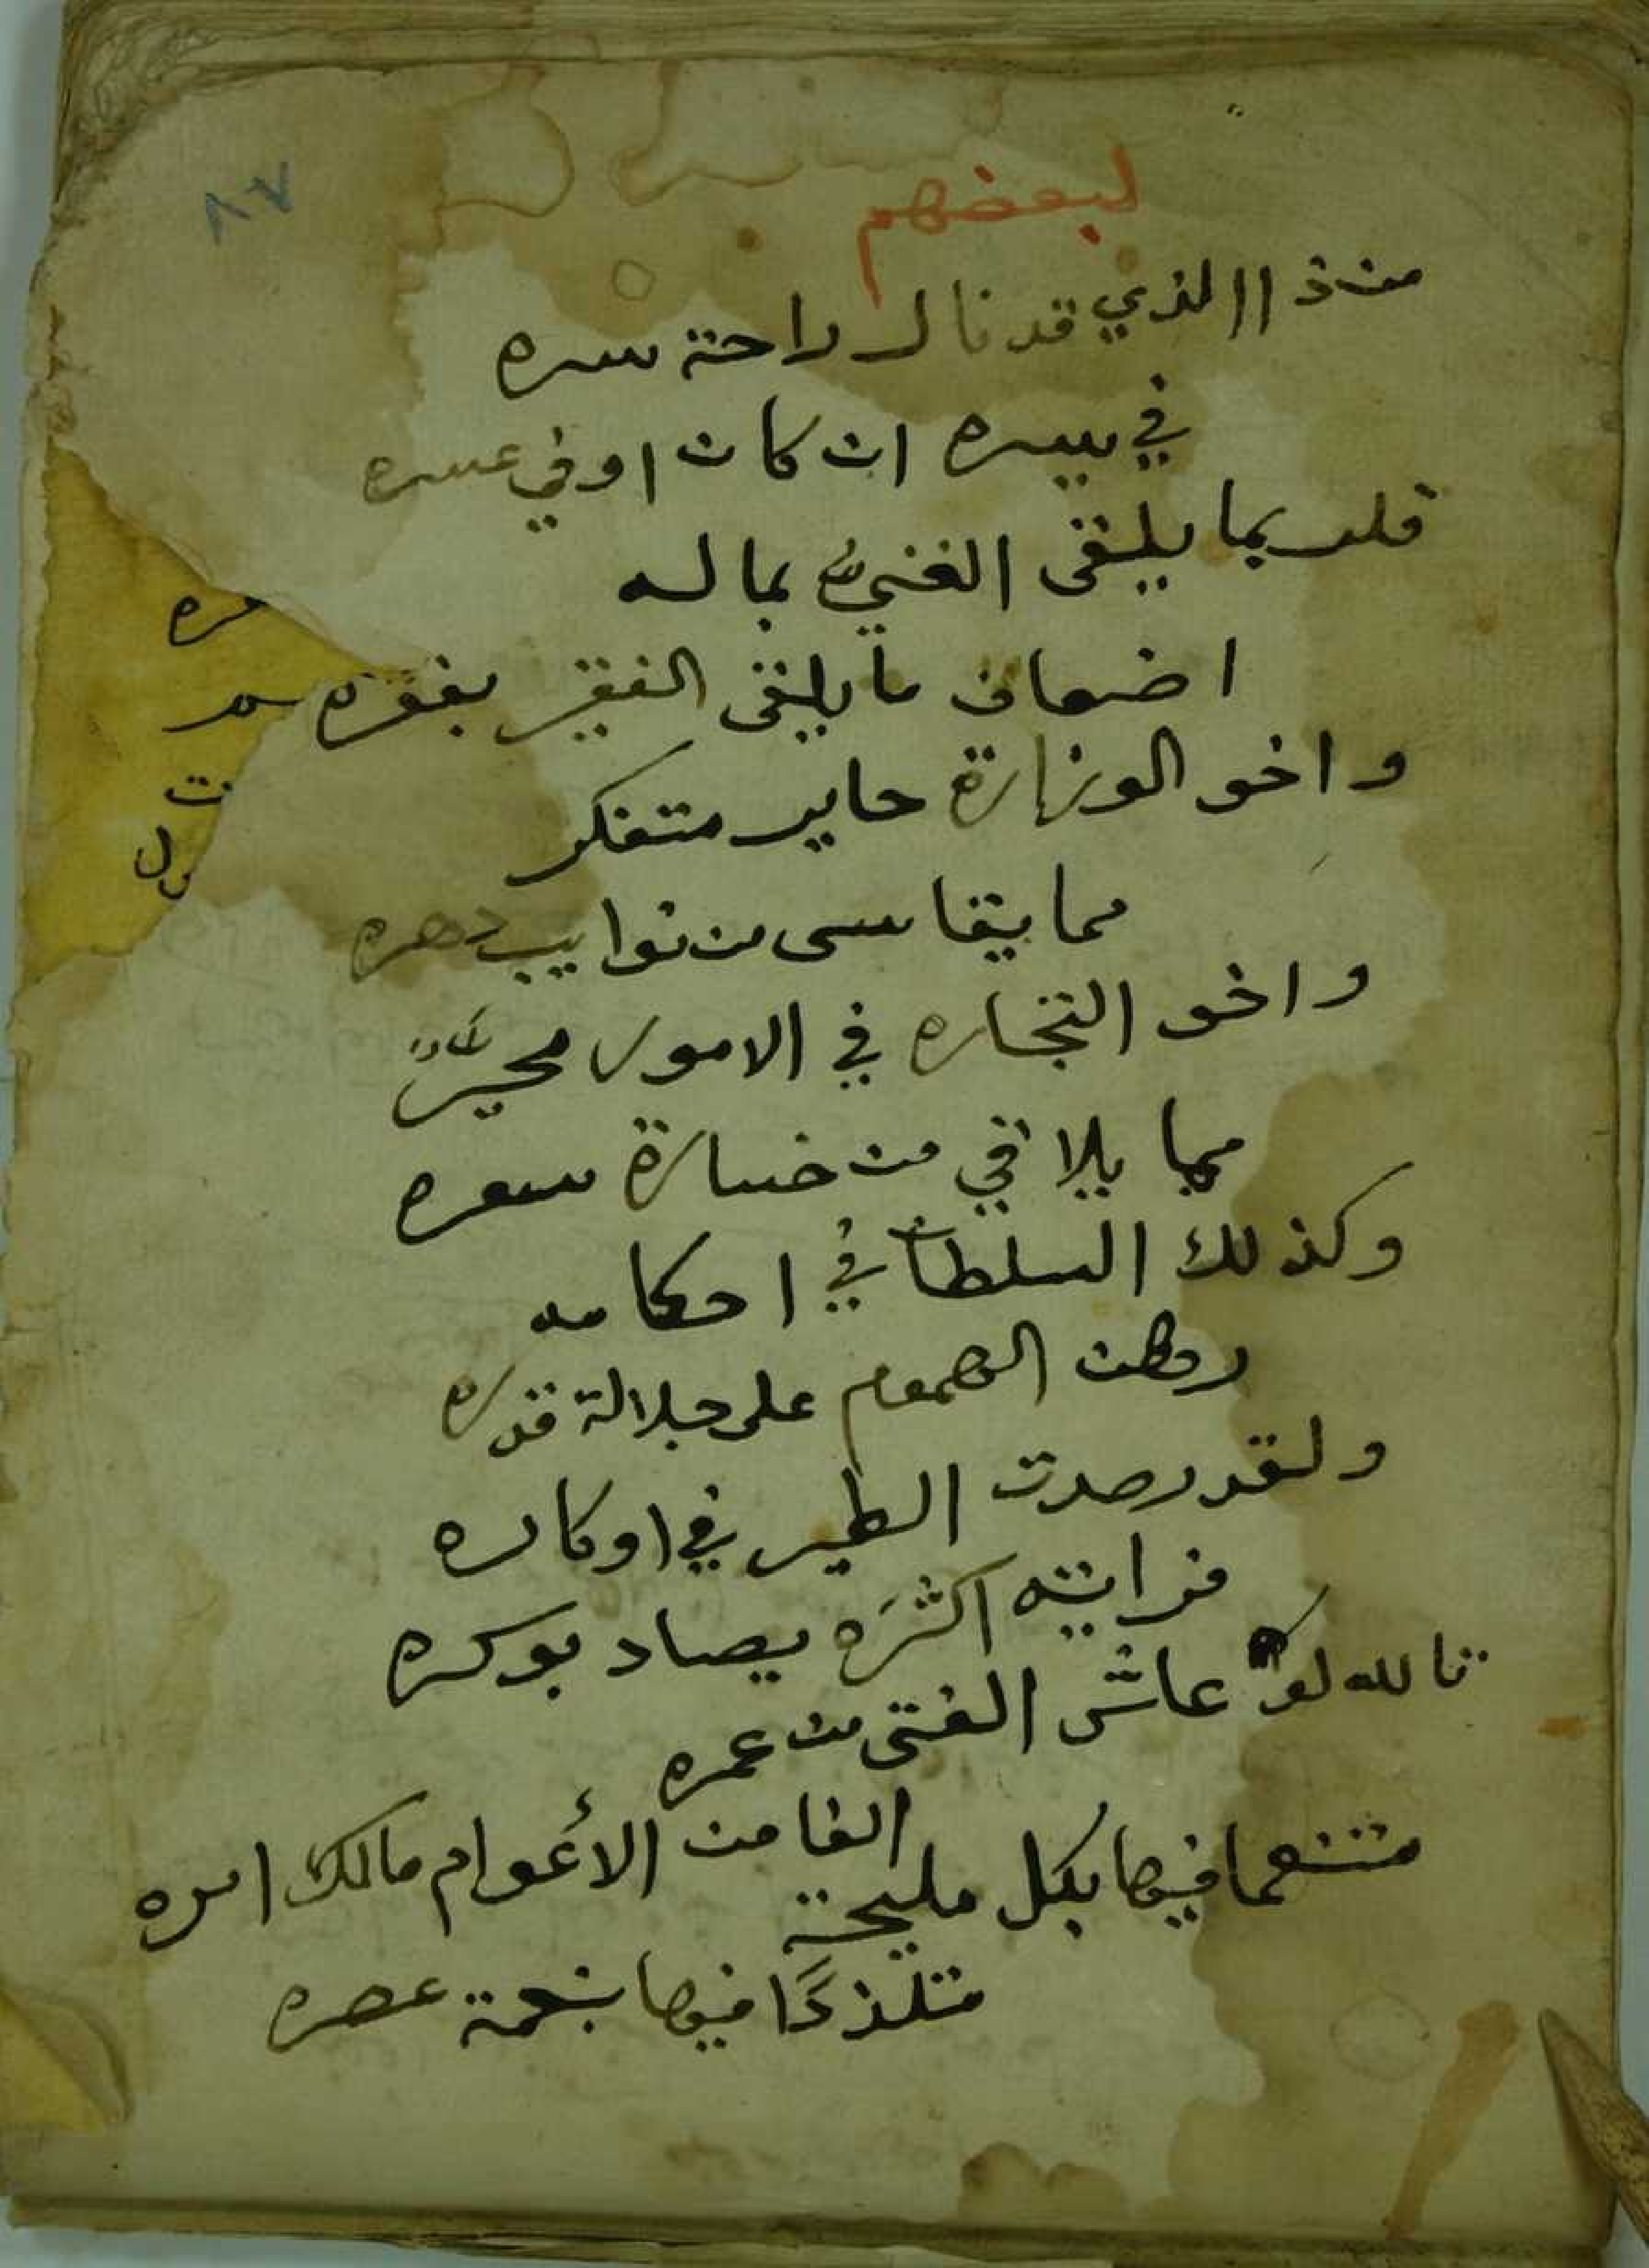 ٨٧
لبعضهم
من ذا الذي قد نال راحة سره
في يسره ان كان او في عسره
فلربما يلقى الغني بماله
اضعاف ما يلقى الفقير بفقره
واخو الوزارة حاير متفكر
مما يقاسى من نوايب دهره
واخو التجاره في الامور محيرٌ
مما يلاقي من خسارة سعره
وكذلك السلطان في احكامه
رهن الهموم على جلالة قدره
ولقد رصدت الطير في اوكاره
فرايته اكثرَه يصاد بوكره
تالله لو عاش الفتى من عمره
الفا من الأعوام مالك امره
متنعما فيها بكل مليحة
متلذذًا فيها بنعمة عصره